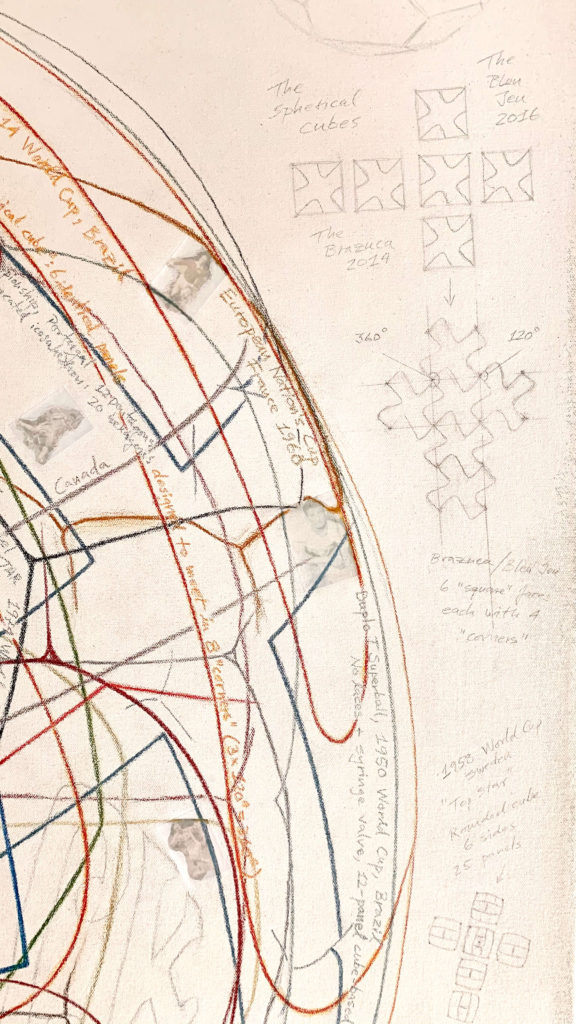 The
Spherical
cubes
The
Bleu
Jeu
2016
The
Brazuca
2014
360°
120°
Brazuca/Bleu Jeu
6 "square" faces
each with 4
"corners"
1958 World Cup
Sweden
"Top star"
Rounded cube
6 sides
25 panels
14 World Cup, Brazil
ical cube": 6 identical panels
designed to meet in 8 "corners" (3 x 120°
European Nation's Cup
France 1960
Portugal
icosahedron, 20 hexagons
Canada
Duplo T Superball, 1950 World Cup, Brazil
No laces + syringe valve, 12-panel cube-based